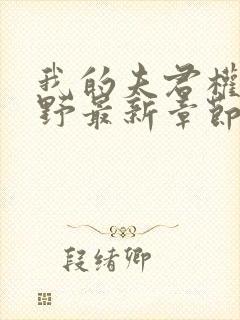 我的夫君權
野最新章節
段绪卿